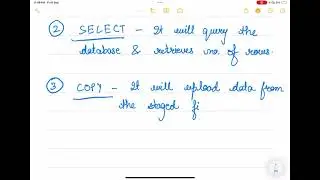 ② SELECT - It will query the
database & retrieves no. of rows.
③ COPY - It will upload data from
the staged fi